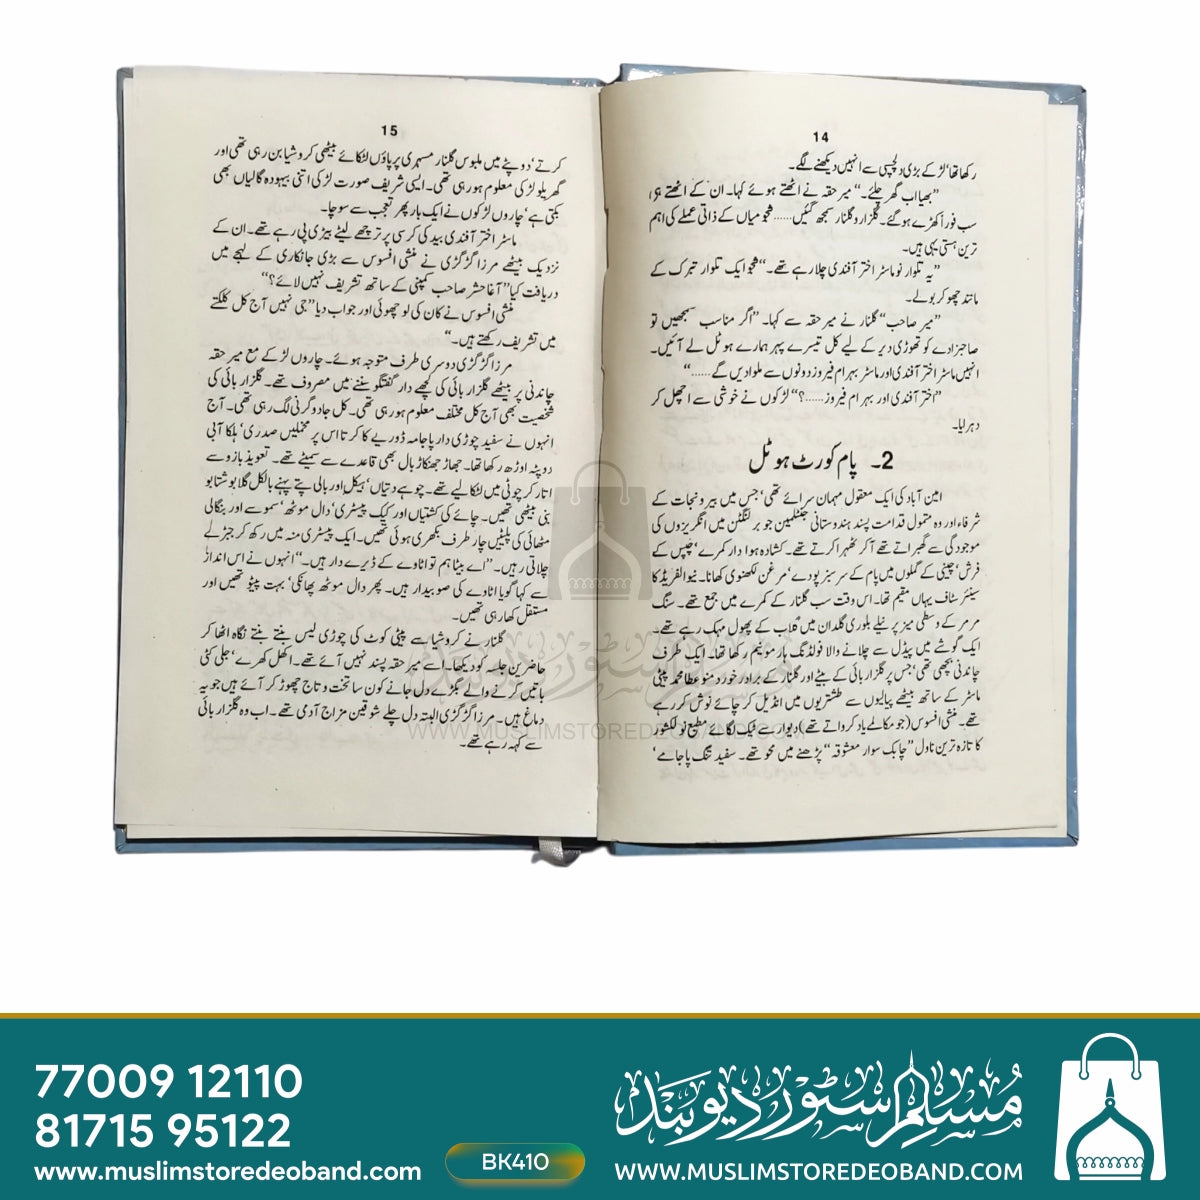 14
رکھا تھا‘ لڑکے بڑی دلچسپی سے انہیں دیکھنے لگے۔
”بھیا اب گھر چلئے۔“ میر حقہ نے اٹھتے ہوئے کہا۔ ان کے اٹھتے ہی
سب فوراً کھڑے ہو گئے۔ گلزار و گلنار سمجھ گئیں...... شجو میاں کے ذاتی عملے کی اہم
ترین ہستی یہی ہیں۔
”یہ تلوار نو ماسٹر اختر آفندی چلا رہے تھے۔“ شجو ایک تلوار تبرک کے
مانند چھو کر بولے۔
”میر صاحب“ گلنار نے میر حقہ سے کہا۔ ”اگر مناسب سمجھیں تو
صاحبزادے کو تھوڑی دیر کے لیے کل تیسرے پہر ہمارے ہوٹل لے آئیں۔
انہیں ماسٹر اختر آفندی اور ماسٹر بہرام فیروز دونوں سے ملوا دیں گے......“
”اختر آفندی اور بہرام فیروز......؟“ لڑکوں نے خوشی سے اچھل کر
دہرایا۔
2۔ پام کورٹ ہوٹل
امین آباد کی ایک معقول مہمان سرائے تھی‘ جس میں بیرونجات کے
شرفاء اور وہ متمول قدامت پسند ہندوستانی جنٹلمین جو برلنگٹن میں انگریزوں کی
موجودگی سے گھبراتے تھے آ کر ٹھہرا کرتے تھے۔ کشادہ ہوادار کمرے‘ چپس کے
فرش‘ چینی کے گملوں میں پام کے سرسبز پودے‘ مرغن لکھنوی کھانا۔ نیو الفریڈ کا
سینئر سٹاف یہاں مقیم تھا۔ اس وقت سب گلنار کے کمرے میں جمع تھے۔ سنگ
مرمر کے وسطی میز پر نیلے بلوری گلدان میں گلاب کے پھول مہک رہے تھے۔
ایک گوشے میں پیڈل سے چلانے والا فولڈنگ ہارمونیم رکھا تھا۔ ایک طرف
چاندنی بچھی تھی‘ جس پر گلزار بائی کے بیٹے اور گلنار کے برادر خورد منو عطا محمد پیٹی
ماسٹر کے ساتھ بیٹھے پیالیوں سے طشتریوں میں انڈیل کر چائے نوش کر رہے
تھے۔ منشی افسوس (جو مکالے یاد کرواتے تھے) دیوار سے ٹیک لگائے مطبع نولکشور
کا تازہ ترین ناول ”چابک سوار معشوقہ“ پڑھنے میں محو تھے۔ سفید تنگ پاجامے‘
15
کرتے‘ دوپٹے میں ملبوس گلنار مسہری پر پاؤں لٹکائے بیٹھی کروشیا بن رہی تھی اور
گھریلو لڑکی معلوم ہو رہی تھی۔ ایسی شریف صورت لڑکی اتنی بیہودہ گالیاں بھی
بکتی ہے‘ چاروں لڑکوں نے ایک بار پھر تعجب سے سوچا۔
ماسٹر اختر آفندی بید کی کرسی پر ترچھے لیٹے بیڑی پی رہے تھے۔ ان کے
نزدیک بیٹھے مرزا گڑگڑی نے منشی افسوس سے بڑی جانکاری کے لہجے میں
دریافت کیا ”آغا حشر صاحب کمپنی کے ساتھ تشریف نہیں لائے؟“
منشی افسوس نے کان کی لو چھوئی اور جواب دیا ”جی نہیں آج کل کلکتے
میں تشریف رکھتے ہیں۔“
مرزا گڑگڑی دوسری طرف متوجہ ہوئے۔ چاروں لڑکے مع میر حقہ
چاندنی پر بیٹھے گلزار بائی کی لچھے دار گفتگو سننے میں مصروف تھے۔ گلزار بائی کی
شخصیت بھی آج کل مختلف معلوم ہو رہی تھی۔ کل جادوگرنی لگ رہی تھی۔ آج
انہوں نے سفید چوڑی دار پاجامہ ڈوریے کا کرتا اس پر مخملیں صدری‘ ہلکا آبی
دوپٹہ اوڑھ رکھا تھا۔ جھاڑ جھنکاڑ بال بھی قاعدے سے سمیٹے تھے۔ تعویذ بازو سے
اتار کر چوٹی میں لٹکا لیے تھے۔ چوہے دتیاں‘ ہیکل اور بالی پتے پہنے بالکل گلابو شتابو
بنی بیٹھی تھیں۔ چائے کی کشتیاں اور کیک پیسٹری‘ دال موٹھ‘ سموسے اور بنگالی
مٹھائی کی پلیٹیں چار طرف بکھری ہوئی تھیں۔ ایک پیسٹری منہ میں رکھ کر جبڑے
چلاتی رہیں۔ ”اے بیٹا ہم تو اٹاوے کے ڈیرے دار ہیں۔“ انہوں نے اس انداز
سے کہا گویا اٹاوے کی صوبیدار ہیں۔ پھر دال موٹھ پھانکی‘ بہت پیٹو تھیں اور
مستقل کھا رہی تھیں۔
گلنار نے کروشیا سے پیٹی کوٹ کی چوڑی لیس بنتے بنتے نگاہ اٹھا کر
حاضرین جلسہ کو دیکھا۔ اسے میر حقہ پسند نہیں آئے تھے۔ اکھل کھرے‘ جلی کٹی
باتیں کرنے والے بگڑے دل جانے کون سا تخت و تاج چھوڑ کر آئے ہیں جو یہ
دماغ ہیں۔ مرزا گڑگڑی البتہ دل چلے شوقین مزاج آدمی تھے۔ اب وہ گلزار بائی
سے کہہ رہے تھے۔
WWW.MUSLIMSTOREDEOBAND.COM
77009 12110
81715 95122
www.muslimstoredeoband.com
BK410
مسلم سٹور دیوبند
WWW.MUSLIMSTOREDEOBAND.COM